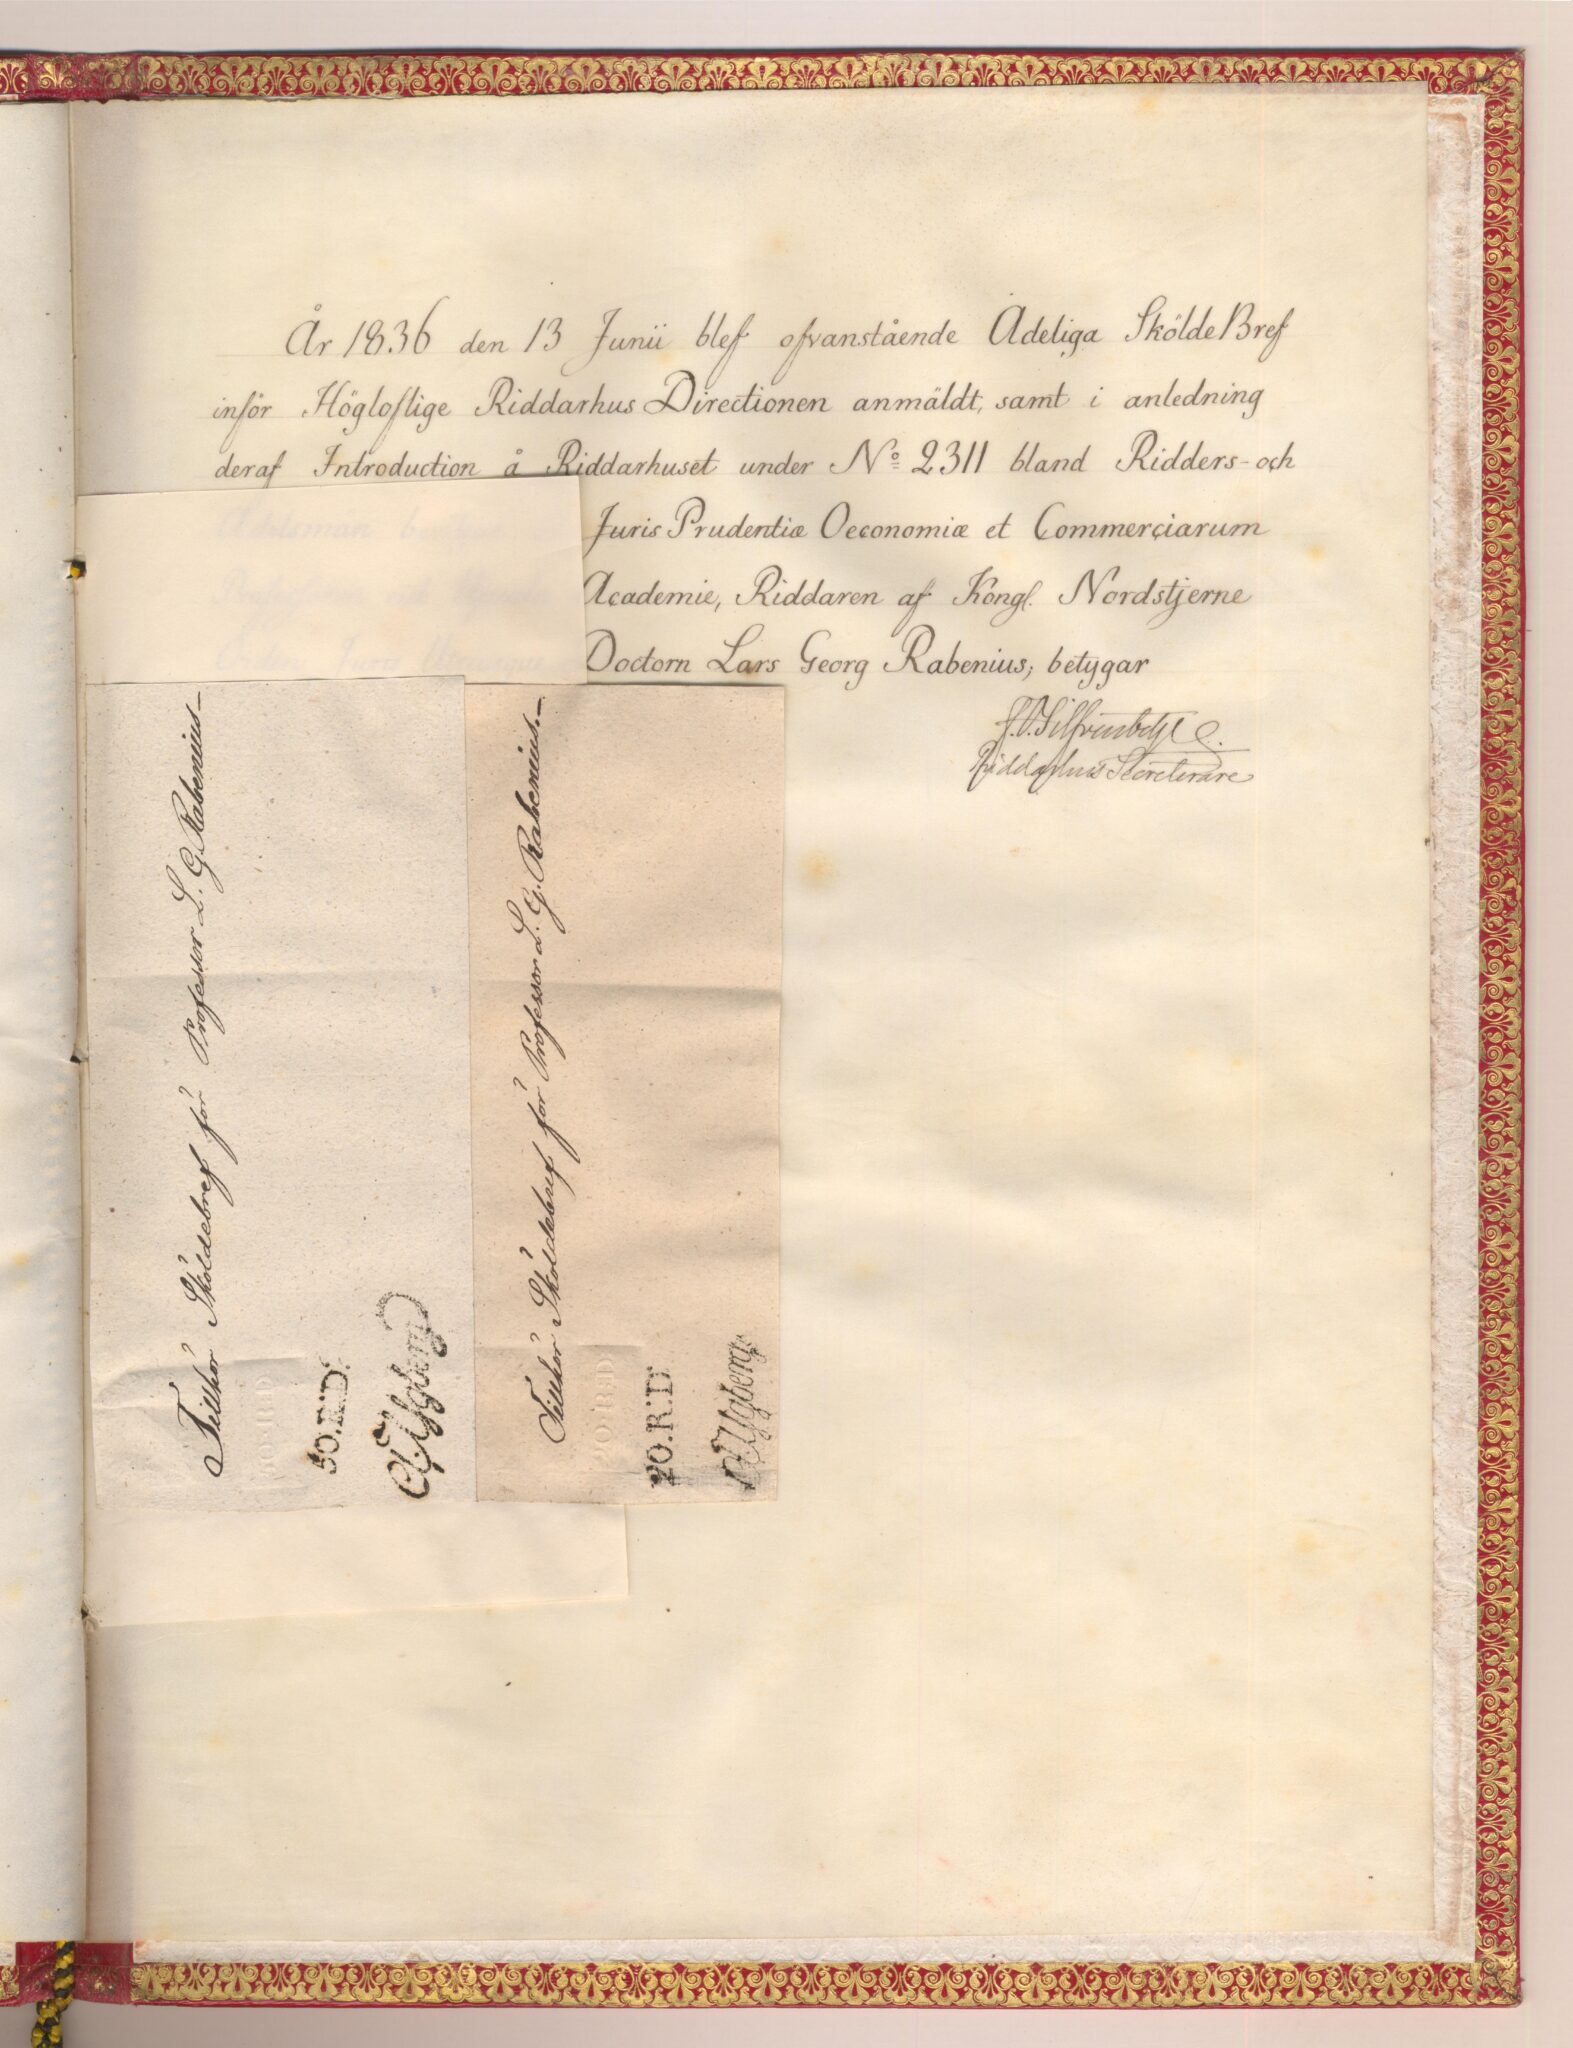 År 1836 den 13 Junii blef ofvanstående Adeliga Skölde Bref
inför Högloflige Riddarhus Directionen anmäldt, samt i anledning
deraf Introduction å Riddarhuset under No 2311 bland Ridders- och
Juris Prudentiæ Oeconomiæ et Commerciarum
Academie, Riddaren af Kongl. Nordstjerne
Doctorn Lars Georg Rabenius; betygar
Riddarhus Secreterare
Tillhör Sköldebref för Professor L. G. Rabenius_
50.R:D:
Tillhör Sköldebref för Professor L. G. Rabenius._
20.R:D: